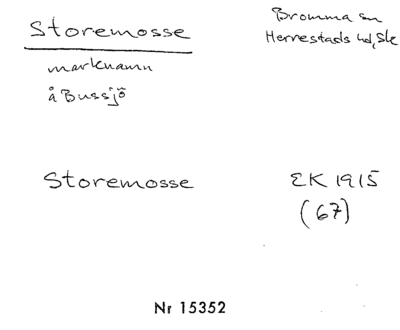 Storemosse
Bromma sn
Herrestads hd, Sk
marknamn
å Bussjö
Storemosse
EK 1915
(67)
Nr 15352